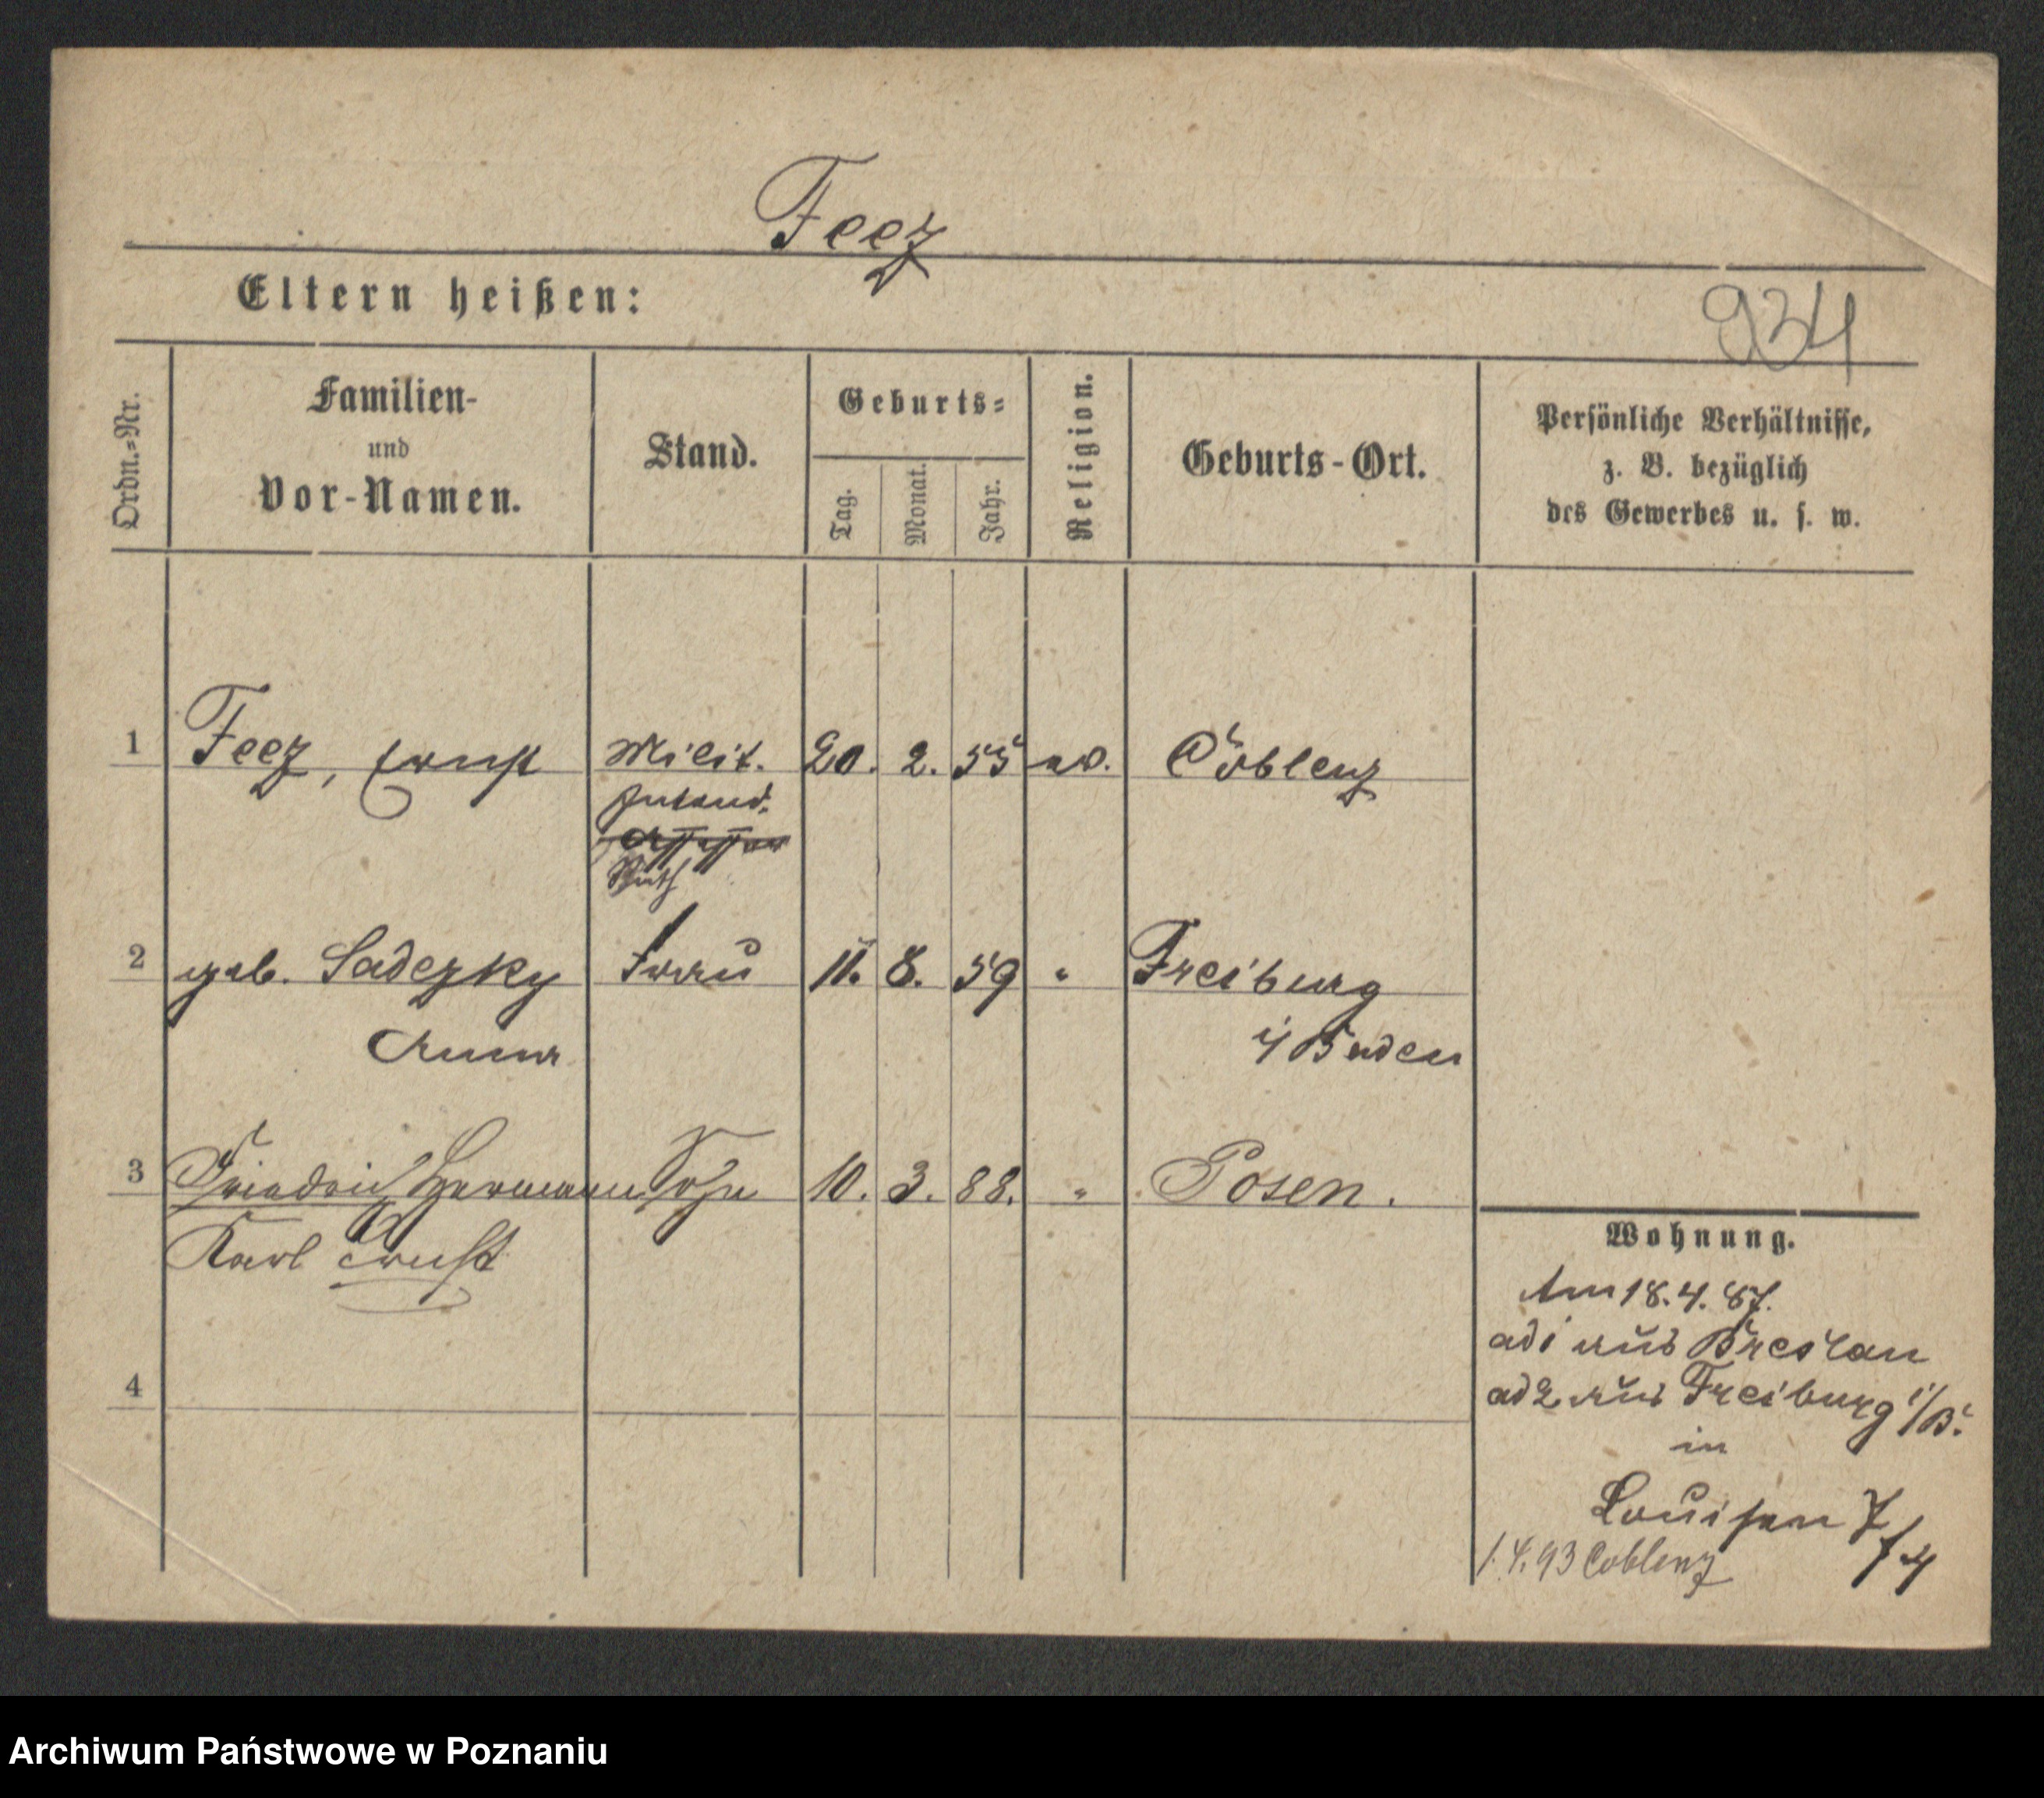 Feez
Eltern heißen:
934
Ordn.-Nr.
Familien-
und
Vor-Namen.
Stand.
Geburts-
Tag.
Monat.
Jahr.
Religion.
Geburts-Ort.
Persönliche Verhältnisse,
z. B. bezüglich
des Gewerbes u. s. w.
1 Feez, Ernst Milit. 20. 2. 55 ev. Coblenz
Intend.
Assessor
Rath
2 geb. Sadezky Frau 11. 8. 59 " Freiburg
Anna i/ Baden
3 Friedrich Hermann Sohn 10. 3. 88. " Posen.
Karl Ernst
4
Wohnung.
Am 18. 4. 87.
ad 1 aus Breslau
ad 2 aus Freiburg i/B.
in
Louisen 7
1.4.93 Coblenz
Archiwum Państwowe w Poznaniu